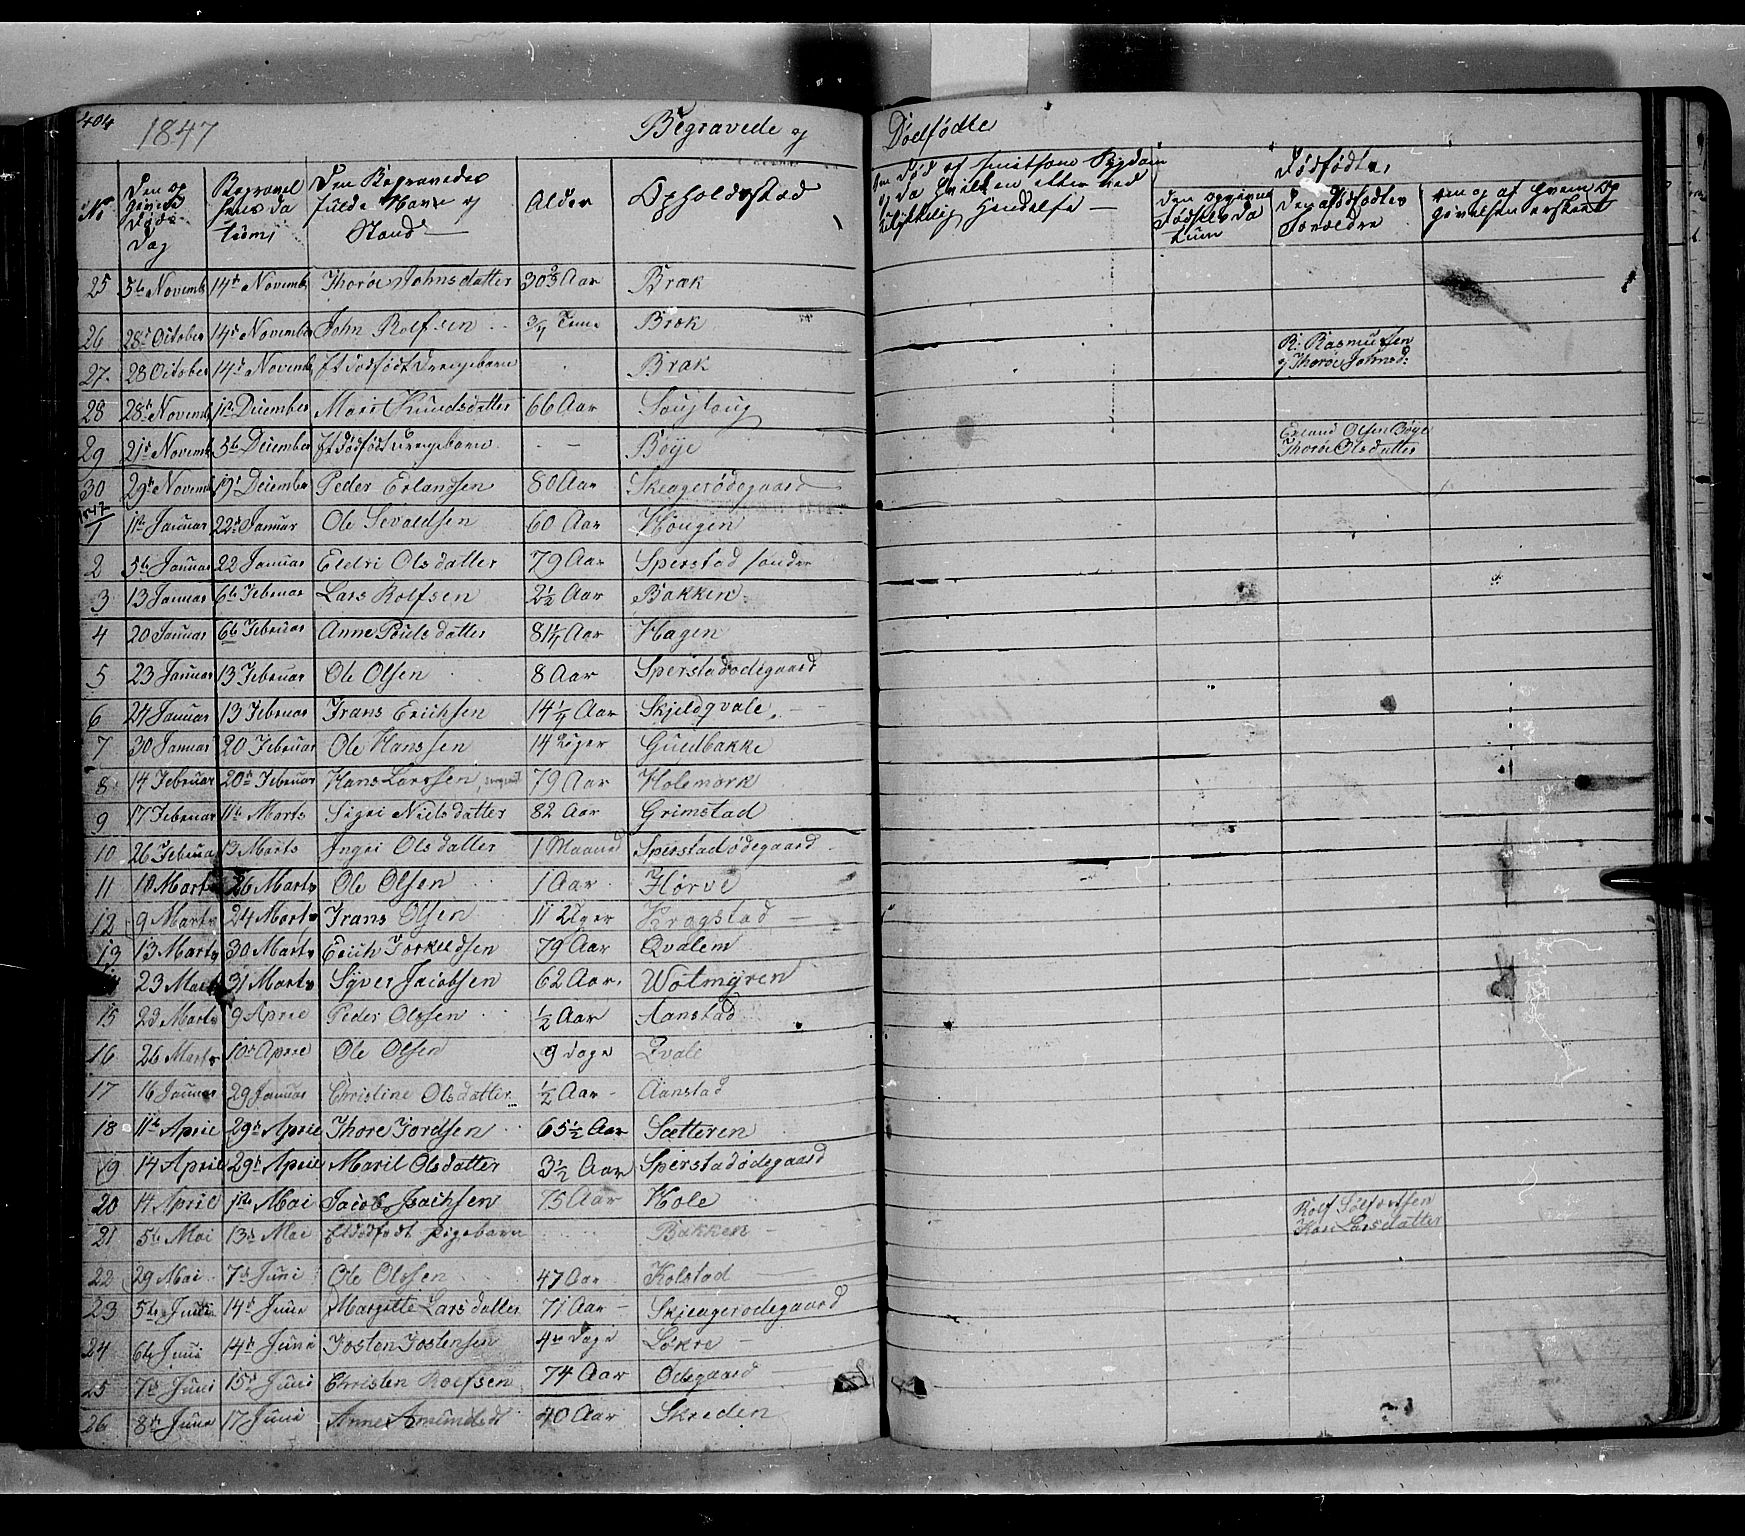 404
1847 Begravede og Dødfødte
No Den op givne Døds Dag Begravel sens Da tum Den Begravedes fulde Navn og Stand Alder Opholdsstad Dødfødte
Den opgivne Fødsels Da tum Den Dødfødtes Forældre
25 5te Novemb 14de Novemb Thorøe Johnsdatter 30 2/3 Aar Bræk
26 28de October 14de November John Rolfsen 3/4 Time Bræk
27 28 October 14de Novemb Et dødfødt Drengebarn Bræk R: Rasmussen
og Thorøe Johnsd:
28 28de Novemb 11te December Mari Knudsdatter 66 Aar
29 21de Novemb 5te December Et dødfødt Drengebarn - - Bøye Erland Olsen Bøye
Thorøe Olsdatter
30 29de Novemb 19de December Peder Erlandsen 80 Aar Skeagerødegaard
1847
1 11te Januar 22de Januar Ole Sevaldsen 60 Aar Hougen
2 5te Januar 22 Januar Eldri Olsdatter 79 Aar Sperstad søndre
3 13 Januar 6te Februar Lars Rolfsen 2 1/2 Aar Bakken
4 20 Januar 6te Februar Anne Poulsdatter 81 1/4 Aar Hagen
5 23 Januar 13 Februar Ole Olsen 8 Aar Sperstadødegaard
6 24 Januar 13 Februar Frans Erichsen 14 1/4 Aar Skjeldqvale
7 30 Januar 20 Februar Ole Hanssen 14 Uger Guulbakke
8 14 Februar 20de Februar Hans Larssen 79 Aar Holemork
9 17 Februar 11te Marts Sigri Nielsdatter 82 Aar Grimstad
10 26 Februa 13 Marts Ingri Olsdatter 1 Maaned Sperstadødegaard
11 10 Marts 26 Marts Ole Olsen 1 Aar Hørve
12 9 Marts 24 Marts Frans Olsen 11 Uger Kragstad
13 13 Marts 30 Marts Erich Torkildsen 79 Aar Qvalem
23 Marts 31 Marts Syver Jacobsen 62 Aar Wolmyren
15 23 Marts 9 April Peder Olssen 1/2 Aar Aanstad
16 26 Marts 10de April Ole Olsen 9 Dage Qvale
17 16 Januar 29 Januar Christine Olsdatter 1/2 Aar Aanstad
18 11te April 29de April Thore Tordsen 65 1/2 Aar Sætteren
19 14 April 29de April Marit Olsdatter 3 1/2 Aar Sperstadødegaard
20 14 April 1ste Mai Jacob Isachsen 75 Aar Hole
21 5te Mai 13de Mai Et dødfødt Pigebarn Bakken Rolf
Kari Larsdatter
22 29 Mai 7de Juni Ole Olssen 47 Aar Kolstad
23 5te Juni 14de Juni Margitte Larsdatter 71 Aar Skjeagerødegaard
24 6te Juni 14de Juni Josten Jostensen 4re Dage Løkre
25 7de Juni 15de Juni Christen Rolfsen 74 Aar Ødegaard
26 8de Juni 17 Juni Anne Amundsdt 40 Aar Skreden